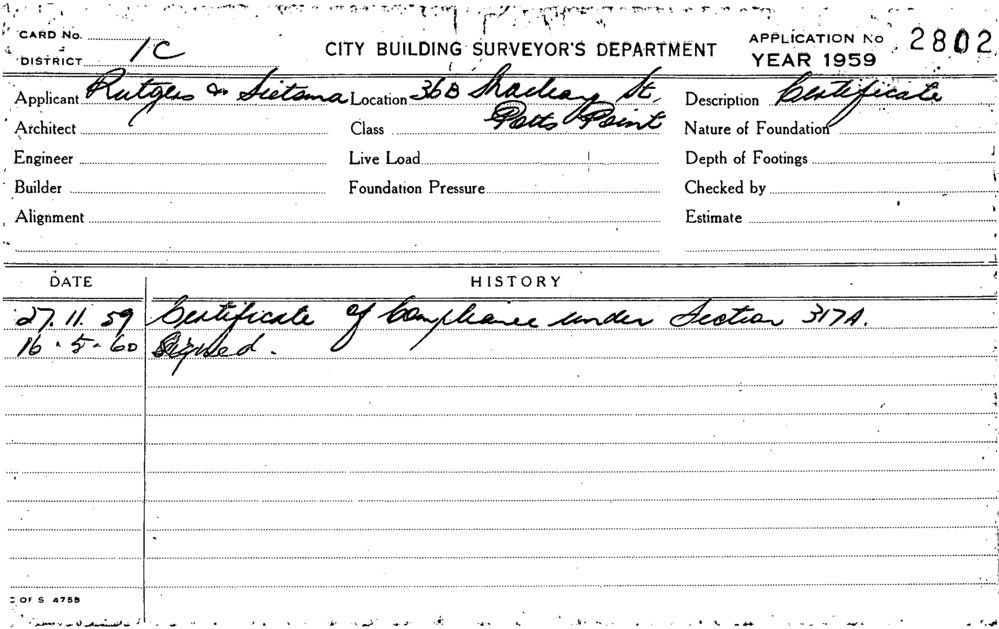 CARD No.
DISTRICT 1C
CITY BUILDING SURVEYOR'S DEPARTMENT
APPLICATION No 2802
YEAR 1959
Applicant Rutgers & Sietsma Location 36B Macleay St, Description Certificate
Architect Class Potts Point Nature of Foundation
Engineer Live Load Depth of Footings
Builder Foundation Pressure Checked by
Alignment Estimate
DATE HISTORY
27.11.59 Certificate of Compliance under Section 317A.
16.5.60 Signed.
C OF S 4759